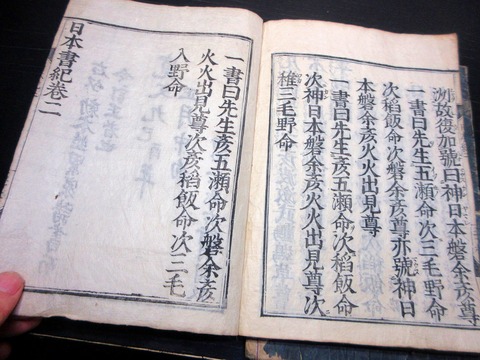 洲故後加號曰神日本磐余彥尊
一書曰先生五瀬命次三毛野命
次稻飯命次磐余彥尊亦號神日
本磐余彥火火出見尊
一書曰先生彥五瀬命次稻飯命
次神日本磐余彥火火出見尊次
稚三毛野命
一書曰先生彥五瀬命次磐余彥
火火出見尊次彥稻飯命次三毛
入野命
日本書紀卷二